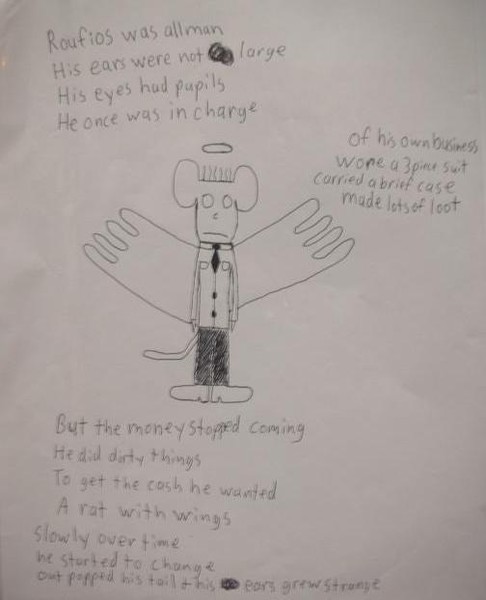 Roufios was all man
His ears were not large
His eyes had pupils
He once was in charge
Of his own business
wore a 3 piece suit
carried a brief case
made lots of loot
But the money stopped coming
He did dirty things
To get the cash he wanted
A rat with wings
Slowly over time
he started to change
out popped his tail & his ears grew strange